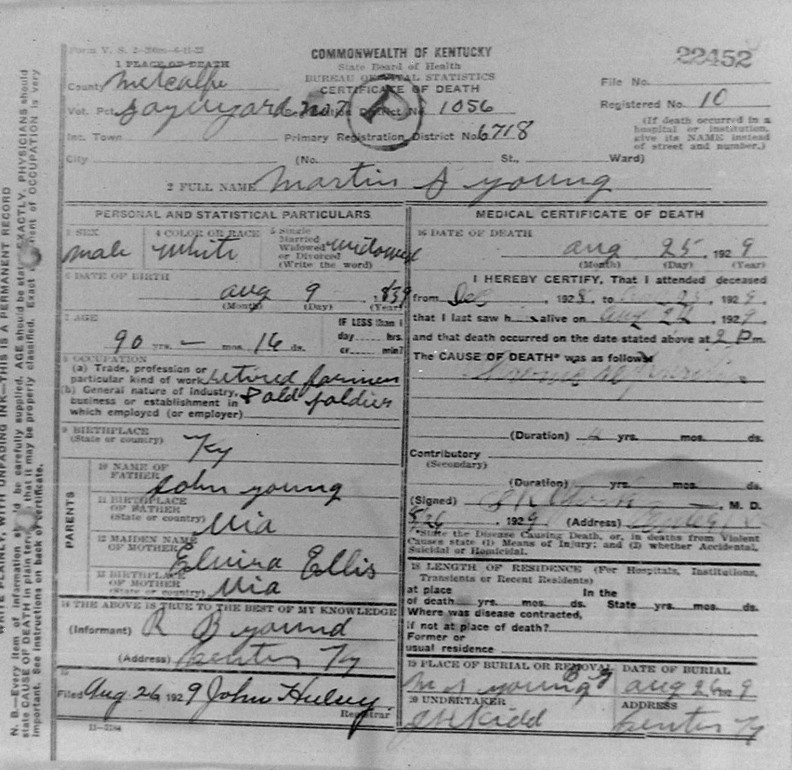 Form V. S.
COMMONWEALTH OF KENTUCKY
State Board of Health
BUREAU OF VITAL STATISTICS
CERTIFICATE OF DEATH
22452
1 PLACE OF DEATH
County Metcalfe
File No.
Vot. Pct. No 7 Registration District No. 1056
Registered No. 10
Inc. Town Primary Registration District No. 6718
(If death occurred in a hospital or institution, give its NAME instead of street and number.)
City (No. St., Ward)
2 FULL NAME Martin S young
PERSONAL AND STATISTICAL PARTICULARS
3 SEX male
4 COLOR OR RACE white
5 Single Married Widowed or Divorced (Write the word) widowed
6 DATE OF BIRTH
aug 9 1839
(Month) (Day) (Year)
7 AGE
90 yrs. — mos. 16 ds.
IF LESS than 1 day hrs. or min?
8 OCCUPATION
(a) Trade, profession or particular kind of work retired farmer
(b) General nature of industry, business or establishment in which employed (or employer) & old soldier
9 BIRTHPLACE
(State or country) Ky
PARENTS
10 NAME OF FATHER John young
11 BIRTHPLACE OF FATHER (State or country)
12 MAIDEN NAME OF MOTHER Elvira Ellis
13 BIRTHPLACE OF MOTHER (State or country)
14 THE ABOVE IS TRUE TO THE BEST OF MY KNOWLEDGE
(Informant) R B young
(Address) Center Ky
15
Filed Aug 26 1929 John Hulsey
Registrar
MEDICAL CERTIFICATE OF DEATH
16 DATE OF DEATH
aug 25, 1929
(Month) (Day) (Year)
I HEREBY CERTIFY, That I attended deceased
from 1928, to 1929
that I last saw h alive on aug 24, 1929
and that death occurred on the date stated above at 2 P m.
The CAUSE OF DEATH* was as follows
(Duration) yrs. mos. ds.
Contributory
(Secondary)
(Duration) yrs. mos. ds.
(Signed) M. D.
8/26, 1929 (Address)
*State the Disease Causing Death, or, in deaths from Violent Causes state (1) Means of Injury; and (2) whether Accidental, Suicidal or Homicidal.
18 LENGTH OF RESIDENCE (For Hospitals, Institutions, Transients or Recent Residents)
at place of death yrs. mos. ds. In the State yrs. mos. ds.
Where was disease contracted, if not at place of death?
Former or usual residence
19 PLACE OF BURIAL OR REMOVAL
M S young B G
DATE OF BURIAL
aug 26 1929
20 UNDERTAKER
J H Kidd
ADDRESS
Center Ky
WRITE PLAINLY, WITH UNFADING INK—THIS IS A PERMANENT RECORD
N. B.—Every item of information should be carefully supplied. AGE should be stated EXACTLY. PHYSICIANS should
state CAUSE OF DEATH in plain terms, that it may be properly classified. Exact statement of OCCUPATION is very
important. See instructions on back of certificate.